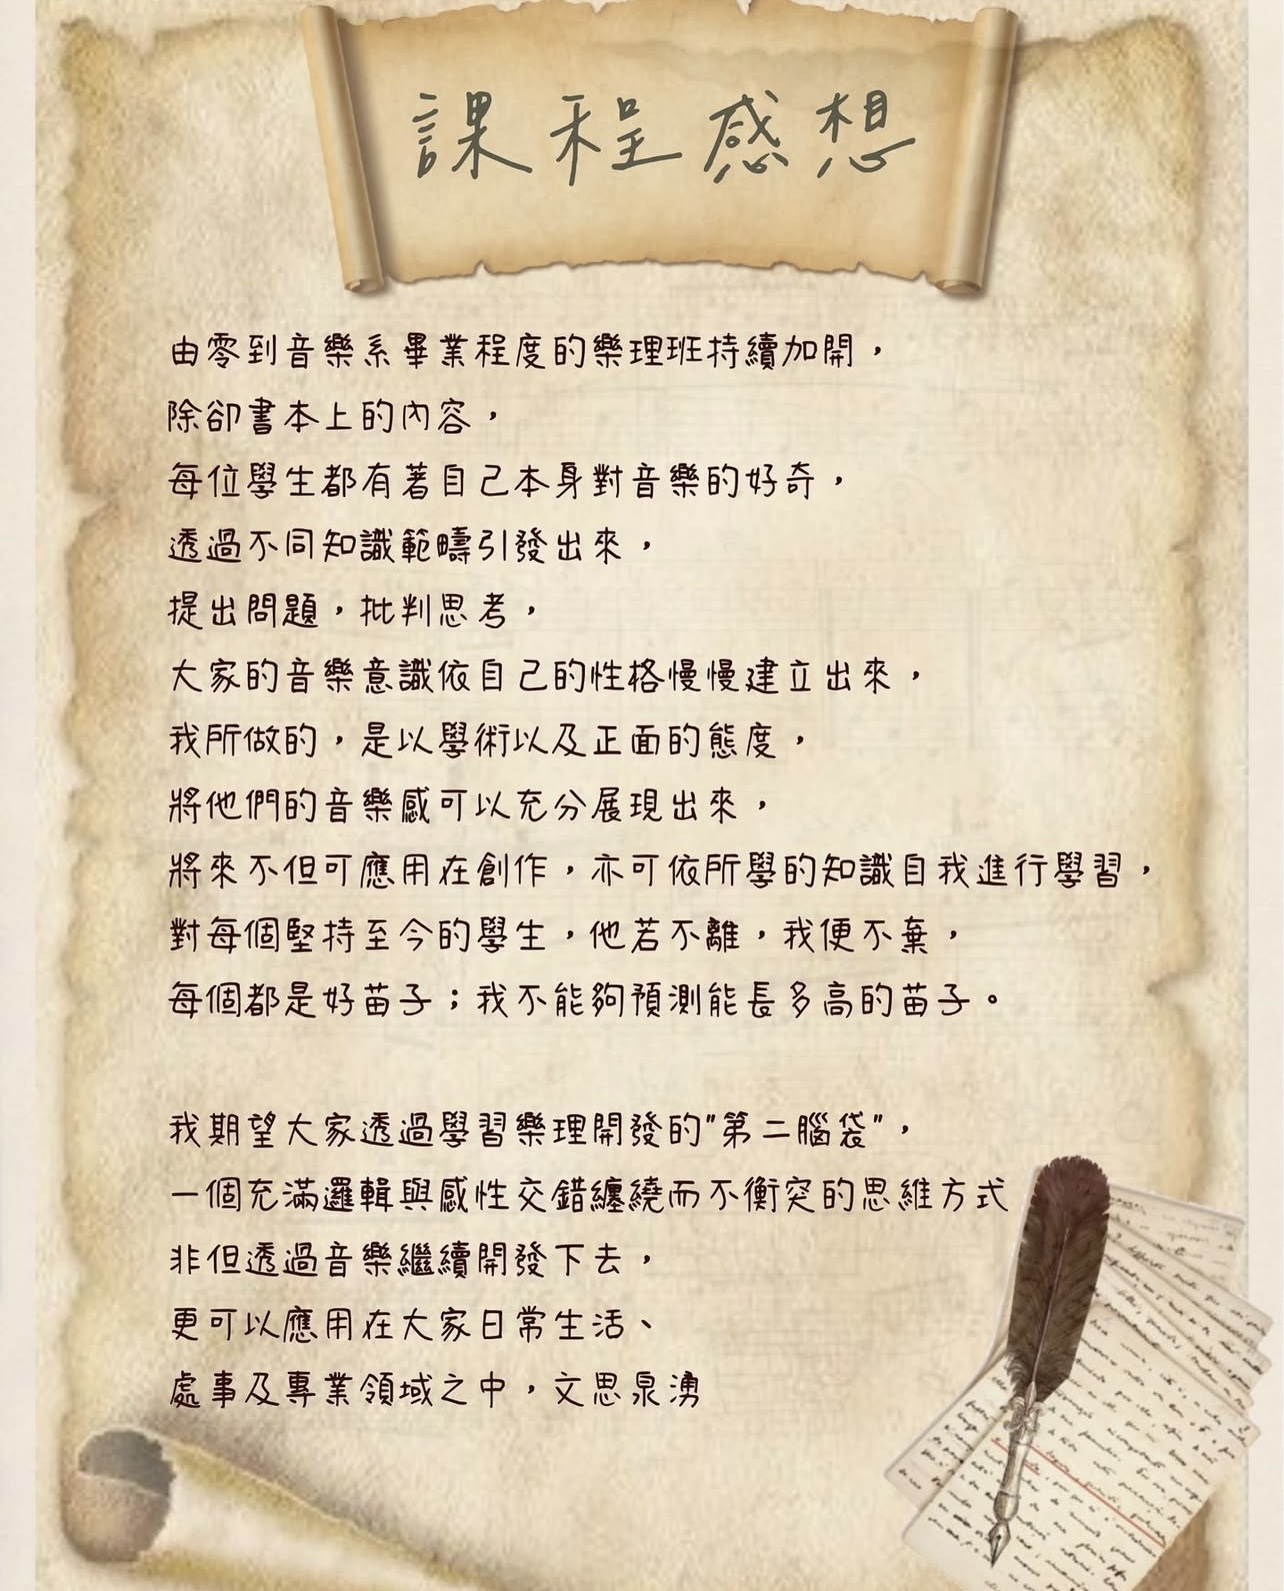 課程感想
由零到音樂系畢業程度的樂理班持續加開，
除卻書本上的內容，
每位學生都有著自己本身對音樂的好奇，
透過不同知識範疇引發出來，
提出問題，批判思考，
大家的音樂意識依自己的性格慢慢建立出來，
我所做的，是以學術以及正面的態度，
將他們的音樂感可以充分展現出來，
將來不但可應用在創作，亦可依所學的知識自我進行學習，
對每個堅持至今的學生，他若不離，我便不棄，
每個都是好苗子；我不能夠預測能長多高的苗子。
我期望大家透過學習樂理開發的"第二腦袋"，
一個充滿邏輯與感性交錯纏繞而不衡突的思維方式
非但透過音樂繼續開發下去，
更可以應用在大家日常生活、
處事及專業領域之中，文思泉湧